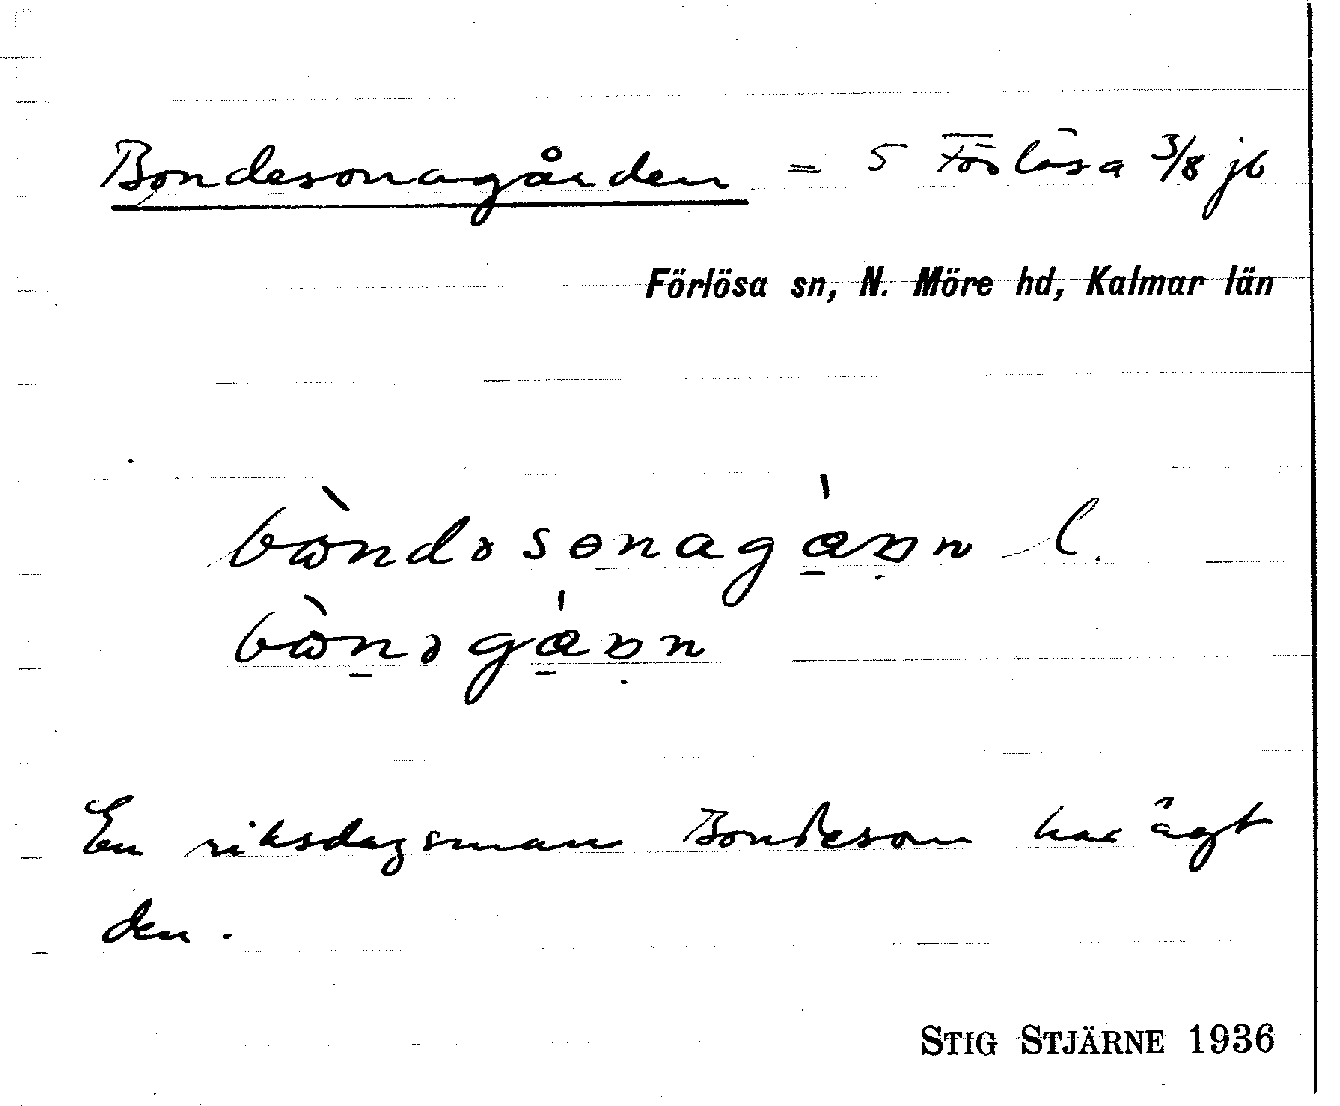 Bondesonagården = 5 Förlösa 3/8 jb
Förlösa sn, N. Möre hd, Kalmar län
l.
En riksdagsman Bondeson har ägt
den.
STIG STJÄRNE 1936